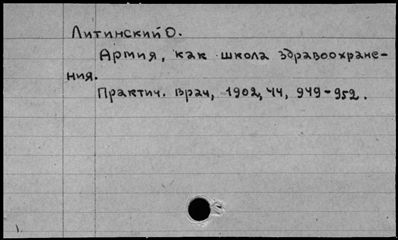 Литинский О.
Армия, как школа здравоохране-
ния.
Практич. врач, 1902, 44, 949-952.